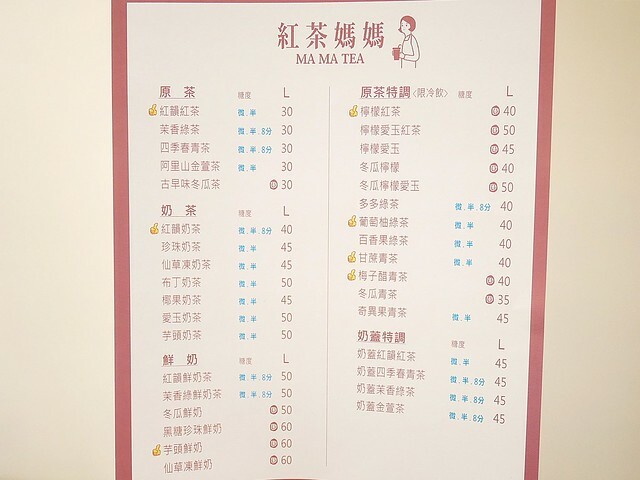 紅茶媽媽
MA MA TEA
原 茶 糖度 L
紅韻紅茶 微.半 30
茉香綠茶 微.半.8分 30
四季春青茶 微.半.8分 30
阿里山金萱茶 微.半 30
古早味冬瓜茶 30
奶 茶 糖度 L
紅韻奶茶 微.半.8分 40
珍珠奶茶 微.半 45
仙草凍奶茶 微.半 45
布丁奶茶 微.半 50
椰果奶茶 微.半 45
愛玉奶茶 微.半 50
芋頭奶茶 微.半 50
鮮 奶 糖度 L
紅韻鮮奶茶 微.半.8分 50
茉香綠鮮奶茶 微.半.8分 50
冬瓜鮮奶 50
黑糖珍珠鮮奶 60
芋頭鮮奶 60
仙草凍鮮奶 60
原茶特調〈限冷飲〉 糖度 L
檸檬紅茶 40
檸檬愛玉紅茶 50
檸檬愛玉 45
冬瓜檸檬 40
冬瓜檸檬愛玉 50
多多綠茶 微.半.8分 40
葡萄柚綠茶 微.半 40
百香果綠茶 微.半 40
甘蔗青茶 微.半 40
梅子醋青茶 40
冬瓜青茶 35
奇異果青茶 微.半 45
奶蓋特調 糖度 L
奶蓋紅韻紅茶 微.半 45
奶蓋四季春青茶 微.半.8分 45
奶蓋茉香綠茶 微.半.8分 45
奶蓋金萱茶 微.半.8分 45